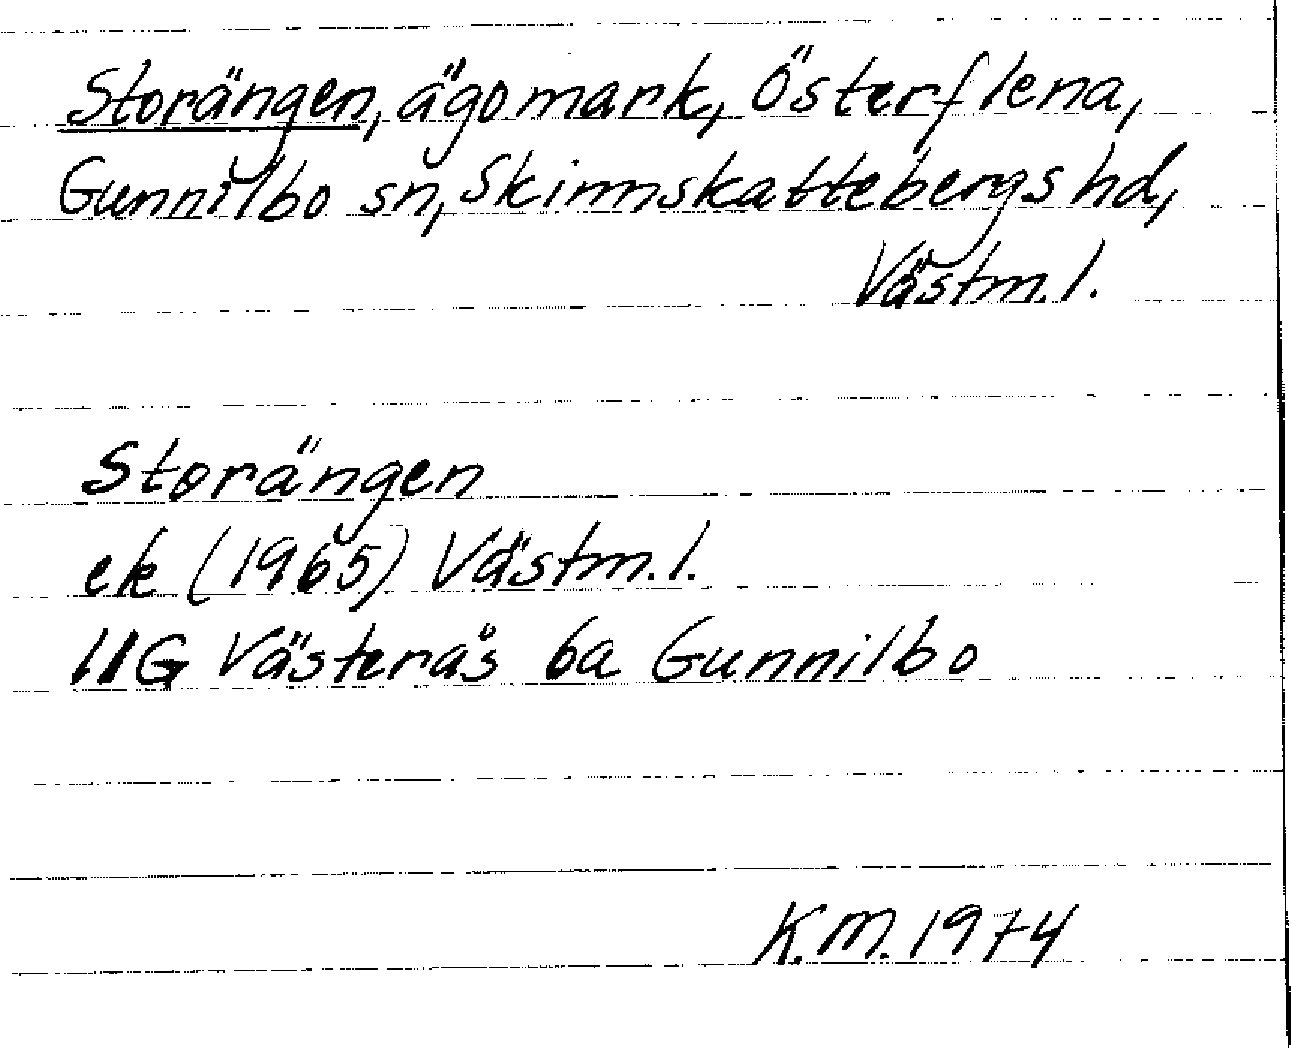 Storängen, ägomark, Österflena,
Gunnilbo sn, Skinnskattebergs hd,
Västm. l.
Storängen
ek (1965) Västm. l.
11G Västerås 6a Gunnilbo
K.M. 1974